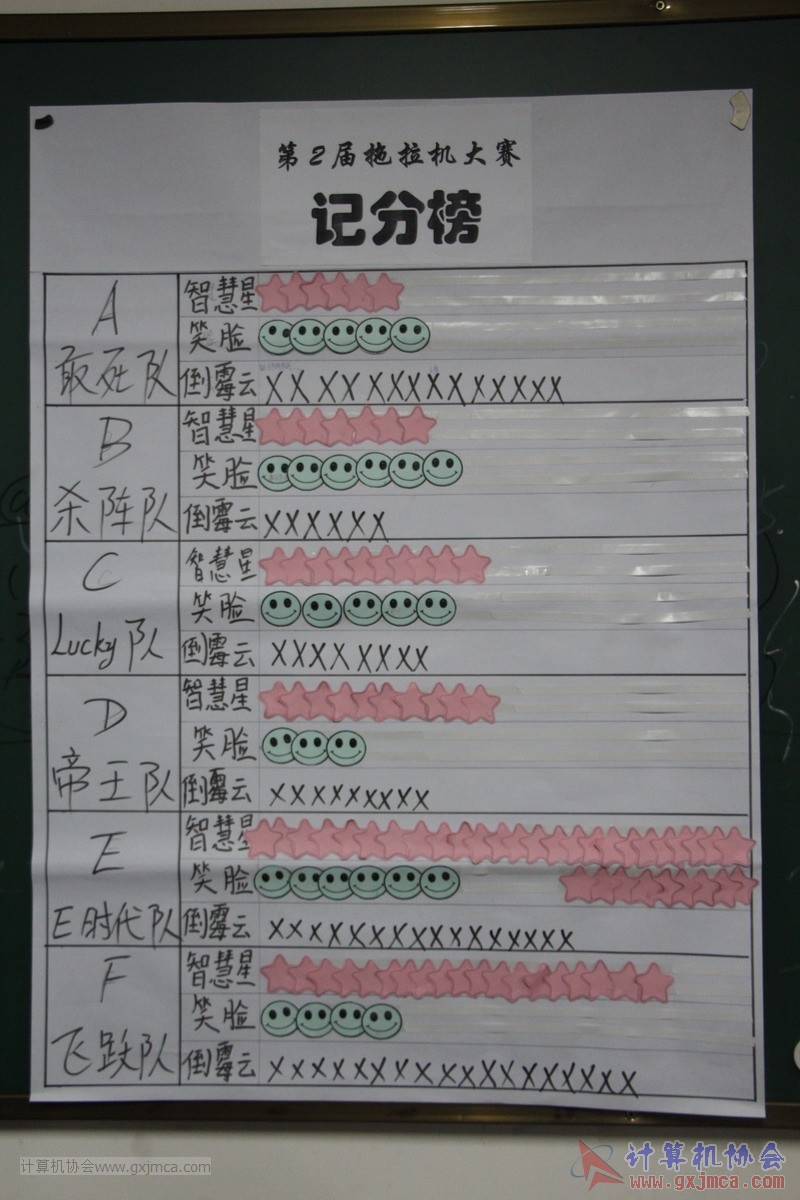 第2届拖拉机大赛
记分榜
A
敢死队
智慧星
笑脸
倒霉云 XXXXXXXXXXXXXX
B
杀阵队
智慧星
笑脸
倒霉云 XXXXXX
C
Lucky队
智慧星
笑脸
倒霉云 XXXXXXXX
D
帝王队
智慧星
笑脸
倒霉云 XXXXXXXX
E
E时代队
智慧星
笑脸
倒霉云 XXXXXXXXXXXXXXX
F
飞跃队
智慧星
笑脸
倒霉云 XXXXXXXXXXXXXXXXX
计算机协会www.gxjmca.com
计算机协会
www.gxjmca.com